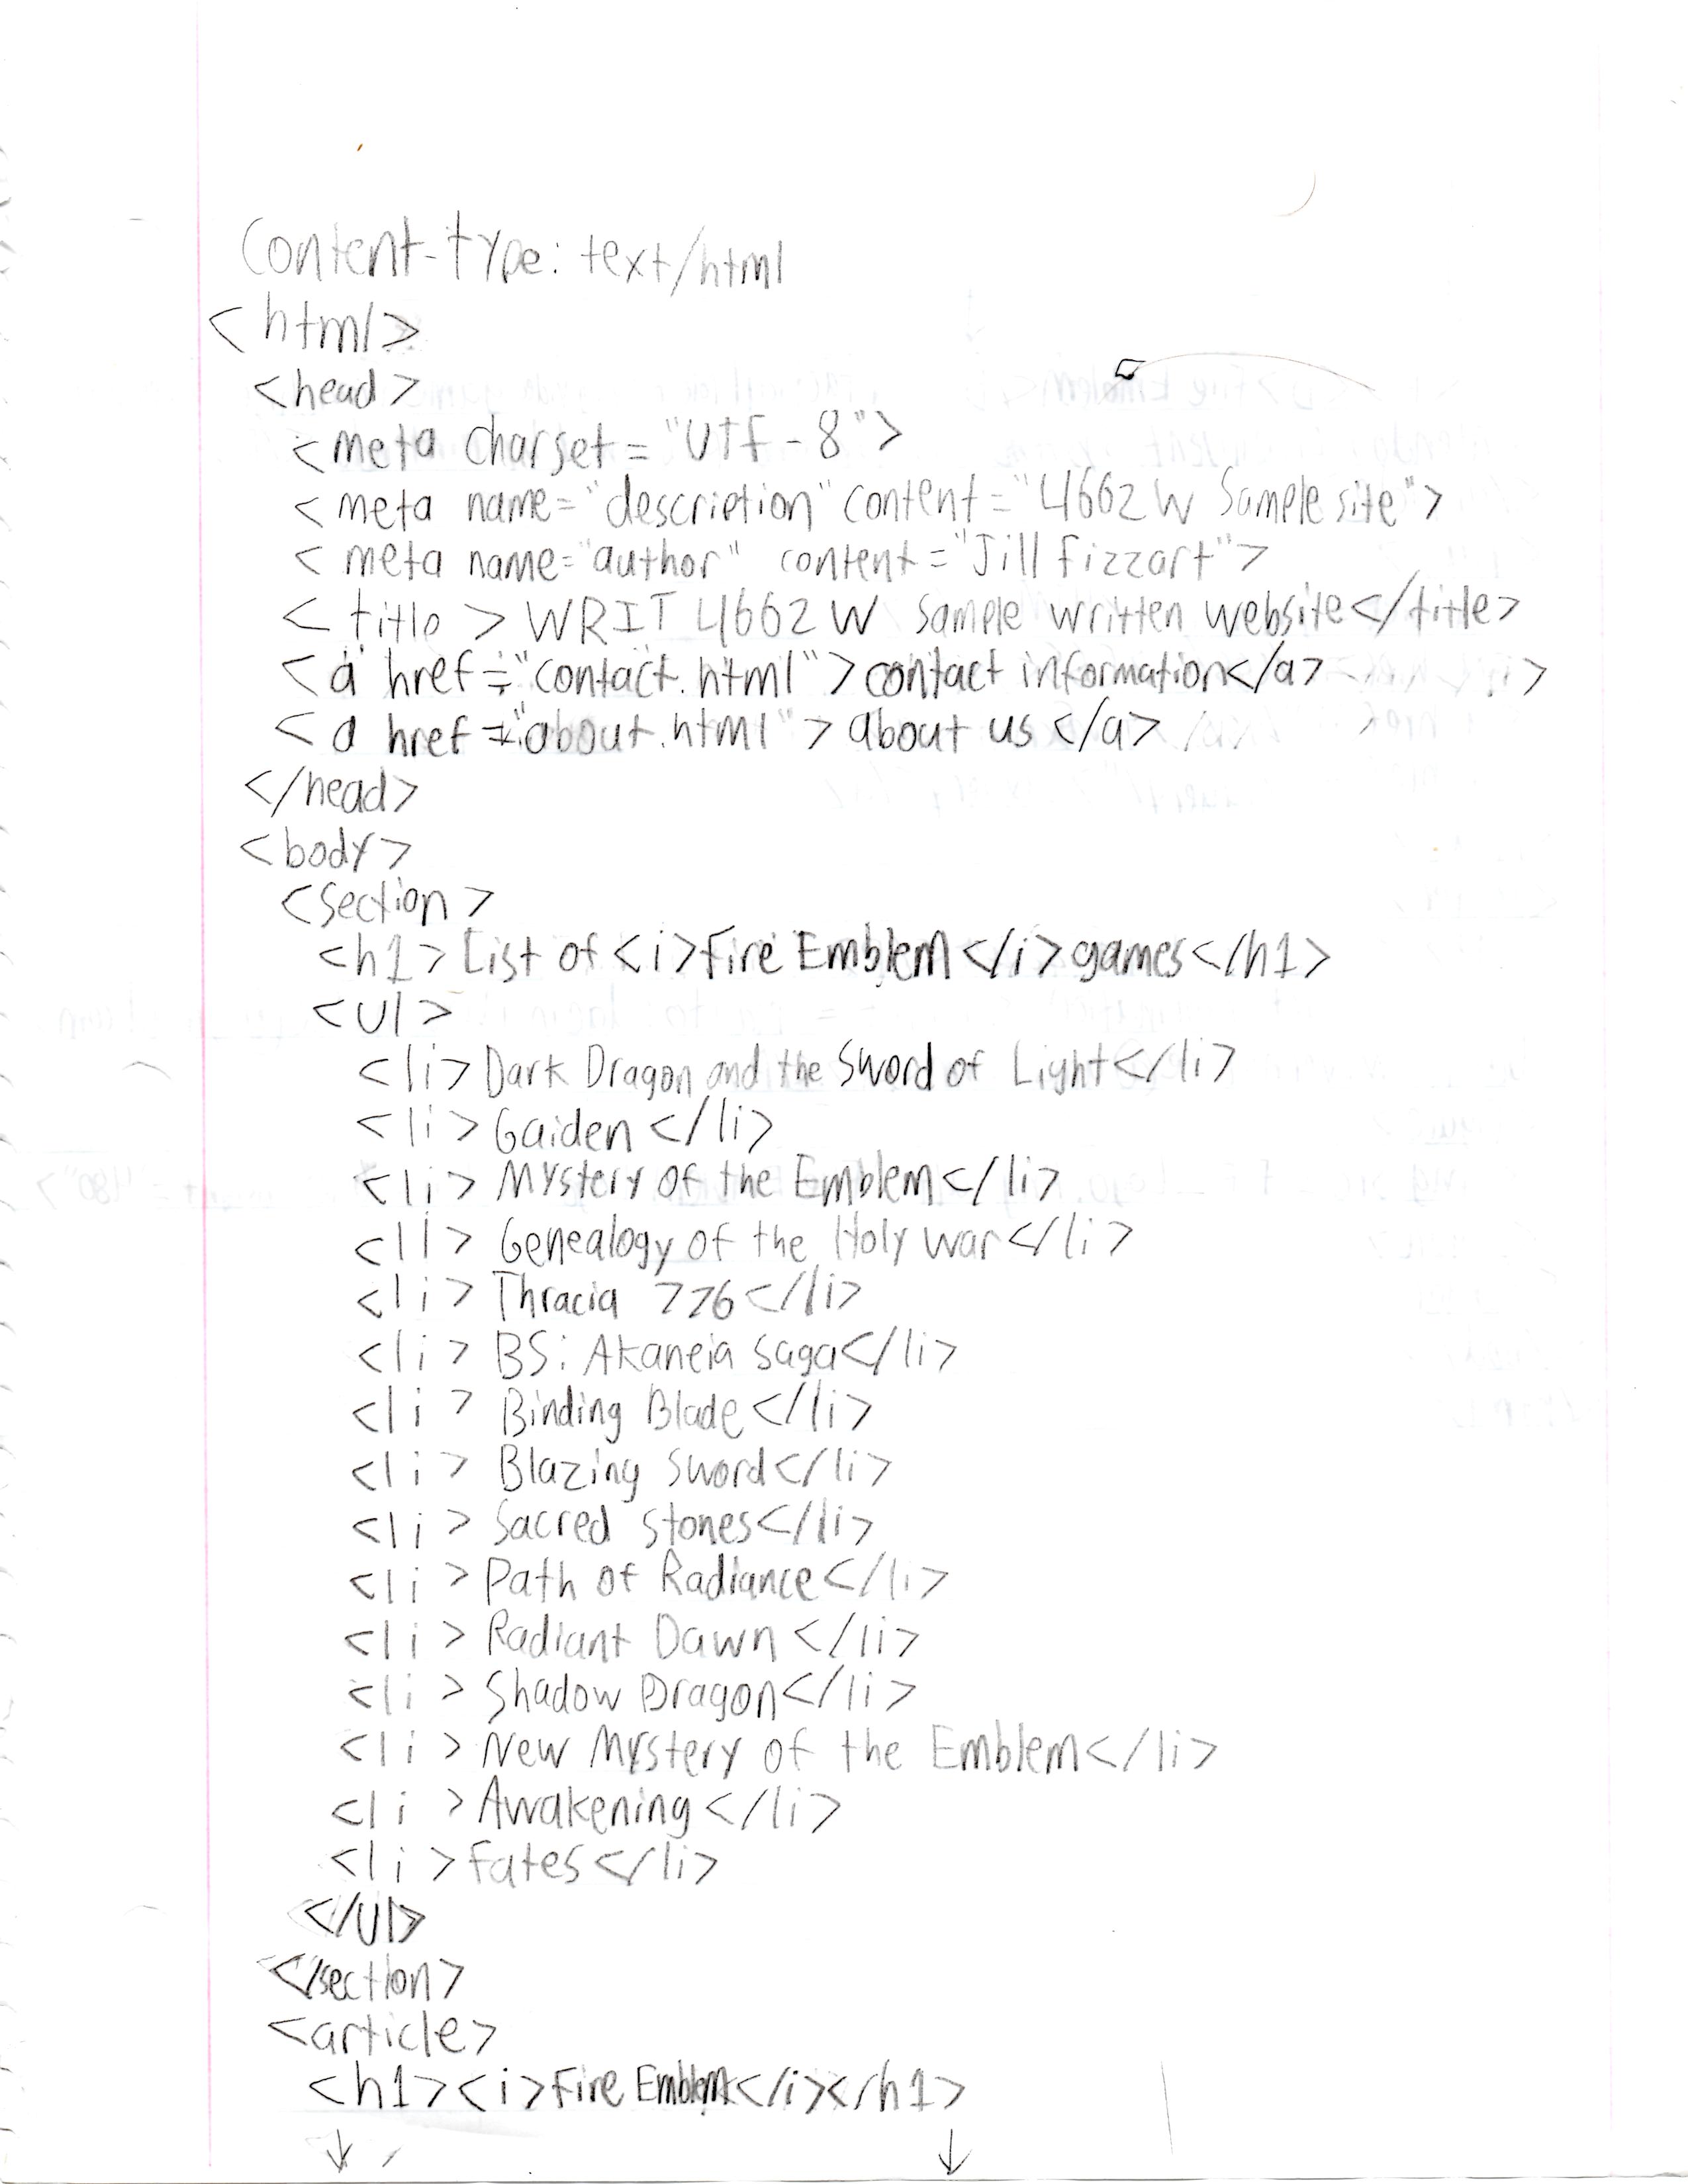 Content-type: text/html
<html>
<head>
<meta charset="UTF-8">
<meta name="description" content="4662W Sample site">
<meta name="author" content="Jill Fizzart">
<title>WRIT 4662W Sample written website</title>
<a href="contact.html">contact information</a> >
<a href="about.html">about us</a>
</head>
<body>
<section>
<h1>List of <i>Fire Emblem</i> games</h1>
<ul>
<li>Dark Dragon and the Sword of Light</li>
<li>Gaiden</li>
<li>Mystery of the Emblem</li>
<li>Genealogy of the Holy War</li>
<li>Thracia 776</li>
<li>BS: Akaneia Saga</li>
<li>Binding Blade</li>
<li>Blazing Sword</li>
<li>Sacred Stones</li>
<li>Path of Radiance</li>
<li>Radiant Dawn</li>
<li>Shadow Dragon</li>
<li>New Mystery of the Emblem</li>
<li>Awakening</li>
<li>Fates</li>
</ul>
</section>
<article>
<h1><i>Fire Emblem</i></h1>